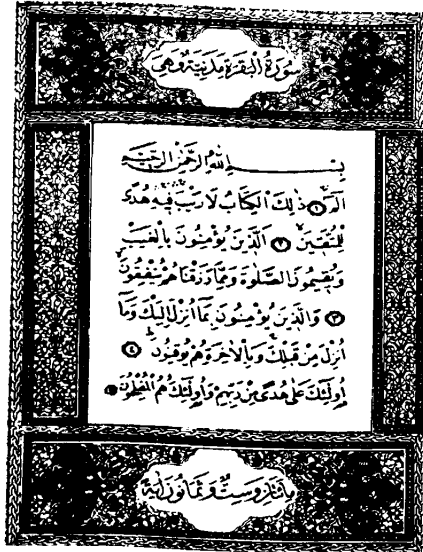 سُورَةُ الْبَقَرَةِ مَدَنِيَّةٌ وَهِيَ
بِسْمِ اللهِ الرَّحْمٰنِ الرَّحِيمِ
الٓمٓ ١ ذٰلِكَ الْكِتَابُ لَا رَيْبَ فِيهِ هُدًى
لِلْمُتَّقِينَ ٢ اَلَّذِينَ يُؤْمِنُونَ بِالْغَيْبِ
وَيُقِيمُونَ الصَّلٰوةَ وَمِمَّا رَزَقْنَاهُمْ يُنْفِقُونَ
٣ وَالَّذِينَ يُؤْمِنُونَ بِمَا اُنْزِلَ اِلَيْكَ وَمَا
اُنْزِلَ مِنْ قَبْلِكَ وَبِالْاٰخِرَةِ هُمْ يُوقِنُونَ ٤
اُولٰئِكَ عَلٰى هُدًى مِنْ رَبِّهِمْ وَاُولٰئِكَ هُمُ الْمُفْلِحُونَ ٥
مِائَتَانِ وَسِتٌّ وَثَمَانُونَ اٰيَةً